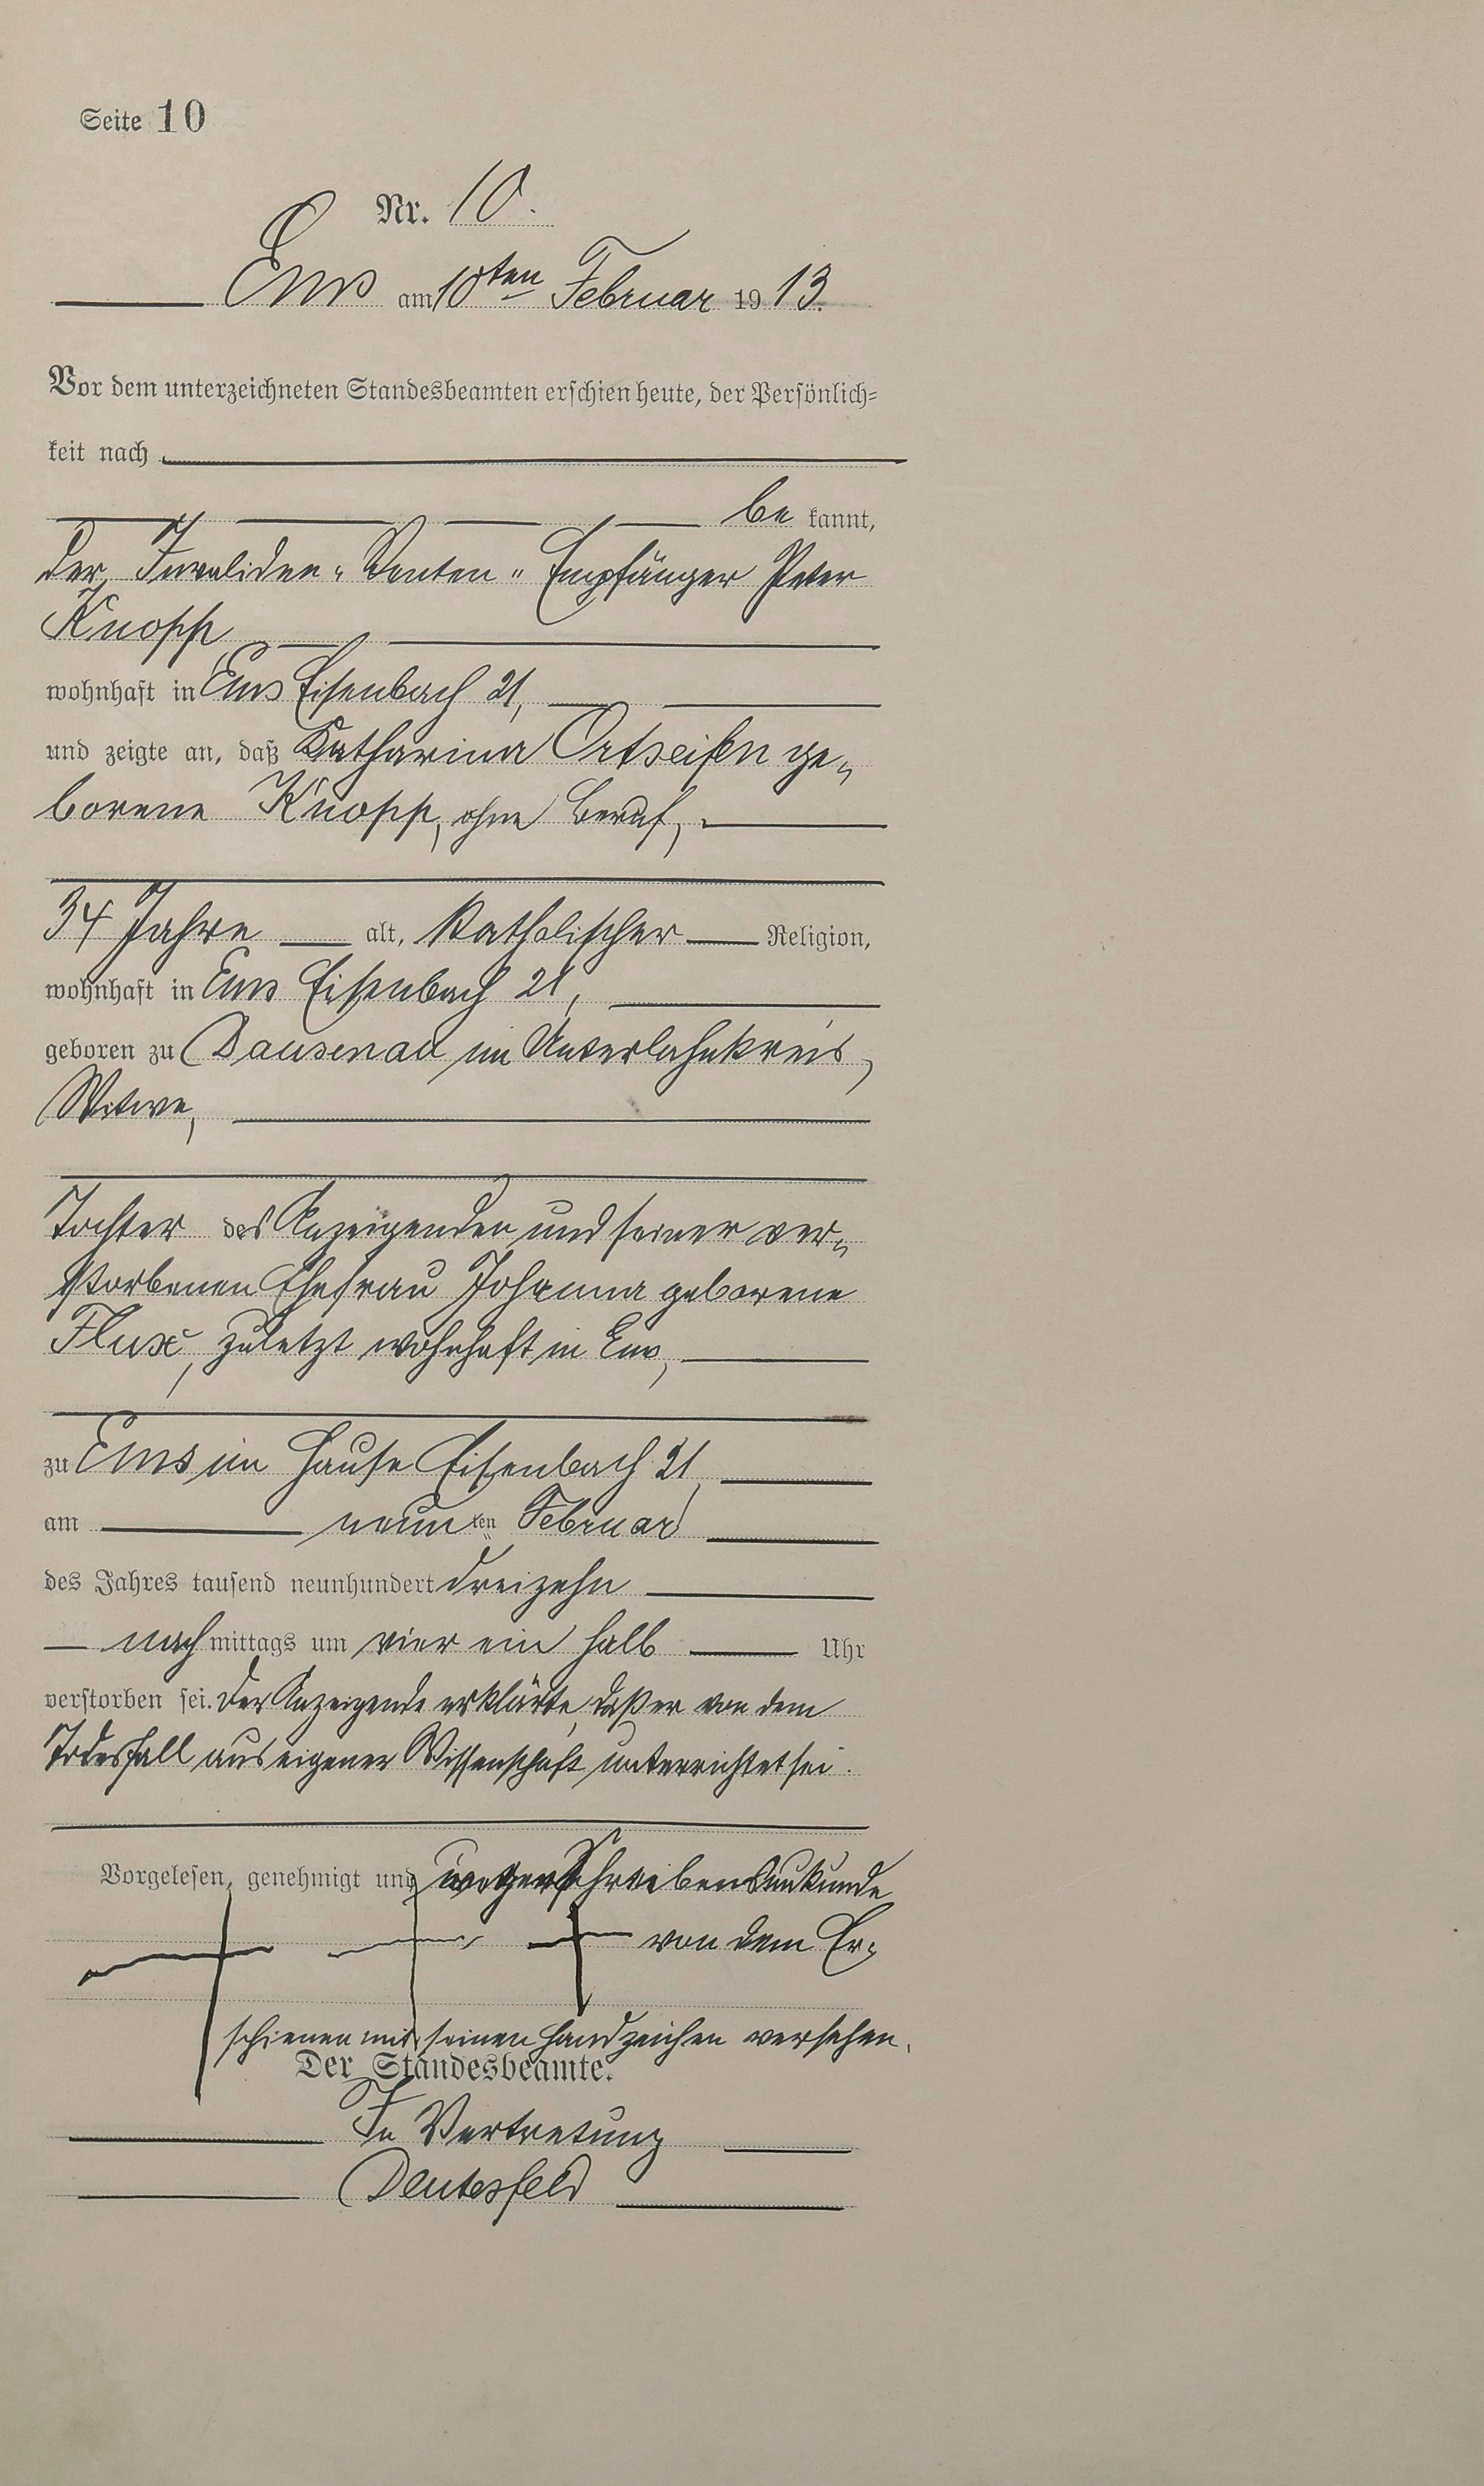 Seite 10
Nr. 10.
Ems am 10ten Februar 1913.
Vor dem unterzeichneten Standesbeamten erschien heute, der Persönlich=
keit nach
be kannt,
der Invaliden-Renten-Empfänger Peter
Knopp
wohnhaft in Ems Eisenbach 21,
und zeigte an, daß Katharina Ortseifen ge-
borene Knopp, ohne Beruf,
34 Jahre alt, katholischer Religion,
wohnhaft in Ems Eisenbach 21,
geboren zu Dausenau im Unterlahnkreis,
Witwe,
Tochter des Anzeigenden und seiner ver-
storbenen Ehefrau Johanna geborene
Flux, zuletzt wohnhaft in Ems,
zu Ems im Hause Eisenbach 21,
am neunten Februar
des Jahres tausend neunhundert dreizehn
nach mittags um vier ein halb Uhr
verstorben sei. Der Anzeigende erklärte, daß er von dem
Todesfall aus eigener Wissenschaft unterrichtet sei.
Vorgelesen, genehmigt und wegen Schreibensunkunde
von dem Er=
schienen mit seinen Handzeichen versehen.
Der Standesbeamte.
In Vertretung